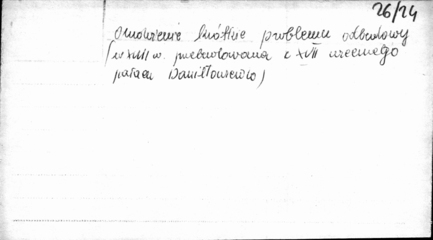 26/24
Omówienie krótkie problemu odbudowy
(w XVIII w. przebudowana z XVII wiecznego
pałacu Daniłłowiczów)